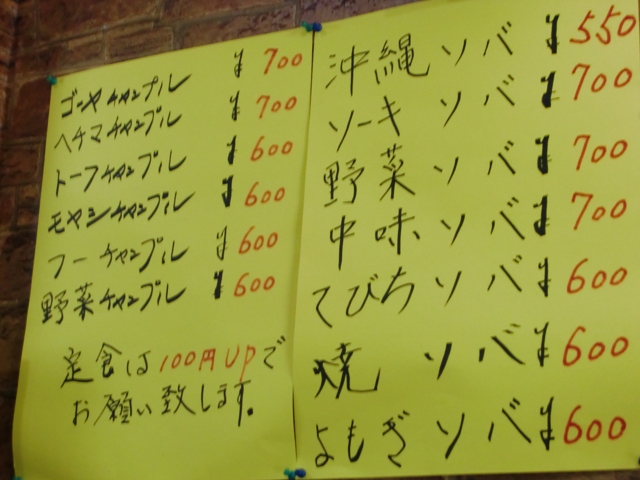 ゴーヤチャンプル ¥700
ヘチマチャンプル ¥700
トーフチャンプル ¥600
モヤシチャンプル ¥600
フーチャンプル ¥600
野菜チャンプル ¥600
定食は100円UPで
お願い致します。
沖縄ソバ ¥550
ソーキソバ ¥700
野菜ソバ ¥700
中味ソバ ¥700
てびちソバ ¥600
焼ソバ ¥600
よもぎソバ ¥600